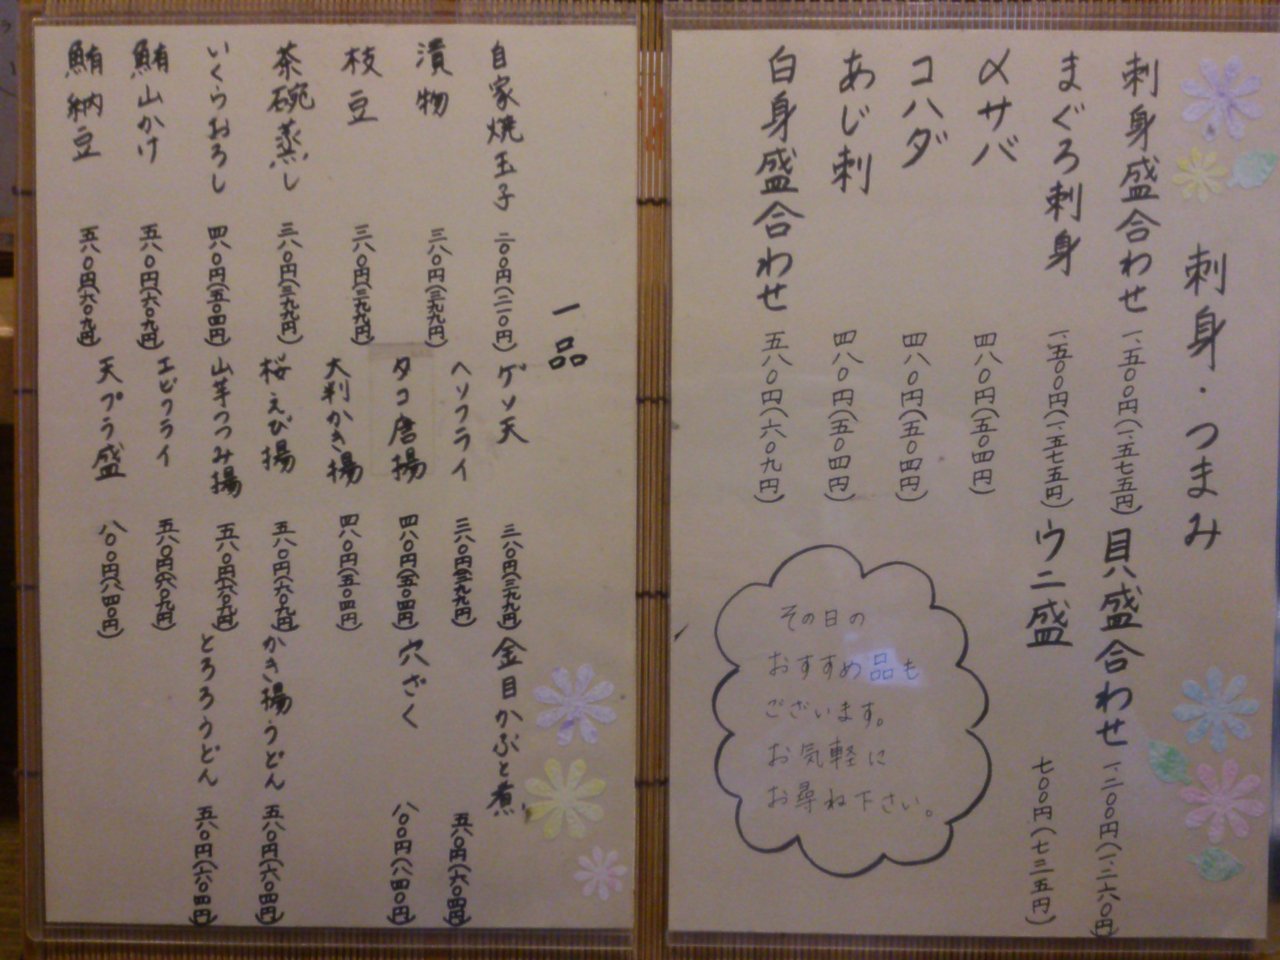 刺身・つまみ
刺身盛合わせ 一、五〇〇円(一、五七五円)
まぐろ刺身 一、五〇〇円(一、五七五円)
〆サバ 四八〇円(五〇四円)
コハダ 四八〇円(五〇四円)
あじ刺 四八〇円(五〇四円)
白身盛合わせ 五八〇円(六〇九円)
貝盛合わせ 一、二〇〇円(一、二六〇円)
ウニ盛 七〇〇円(七三五円)
その日の
おすすめ品も
ございます。
お気軽に
お尋ね下さい。
一品
自家焼玉子 二〇〇円(二一〇円)
漬物 三八〇円(三九九円)
枝豆 三八〇円(三九九円)
茶碗蒸し 三八〇円(三九九円)
いくらおろし 四八〇円(五〇四円)
鮪山かけ 五八〇円(六〇九円)
鮪納豆 五八〇円(六〇九円)
ゲソ天 三八〇円(三九九円)
ヘソフライ 三八〇円(三九九円)
タコ唐揚 四八〇円(五〇四円)
大判かき揚 四八〇円(五〇四円)
桜えび揚 五八〇円(六〇九円)
山芋つつみ揚 五八〇円(六〇九円)
エビフライ 五八〇円(六〇九円)
天プラ盛 八〇〇円(八四〇円)
金目かぶと煮 五八〇円(六〇四円)
穴ざく 八〇〇円(八四〇円)
かき揚うどん 五八〇円(六〇四円)
とろろうどん 五八〇円(六〇四円)